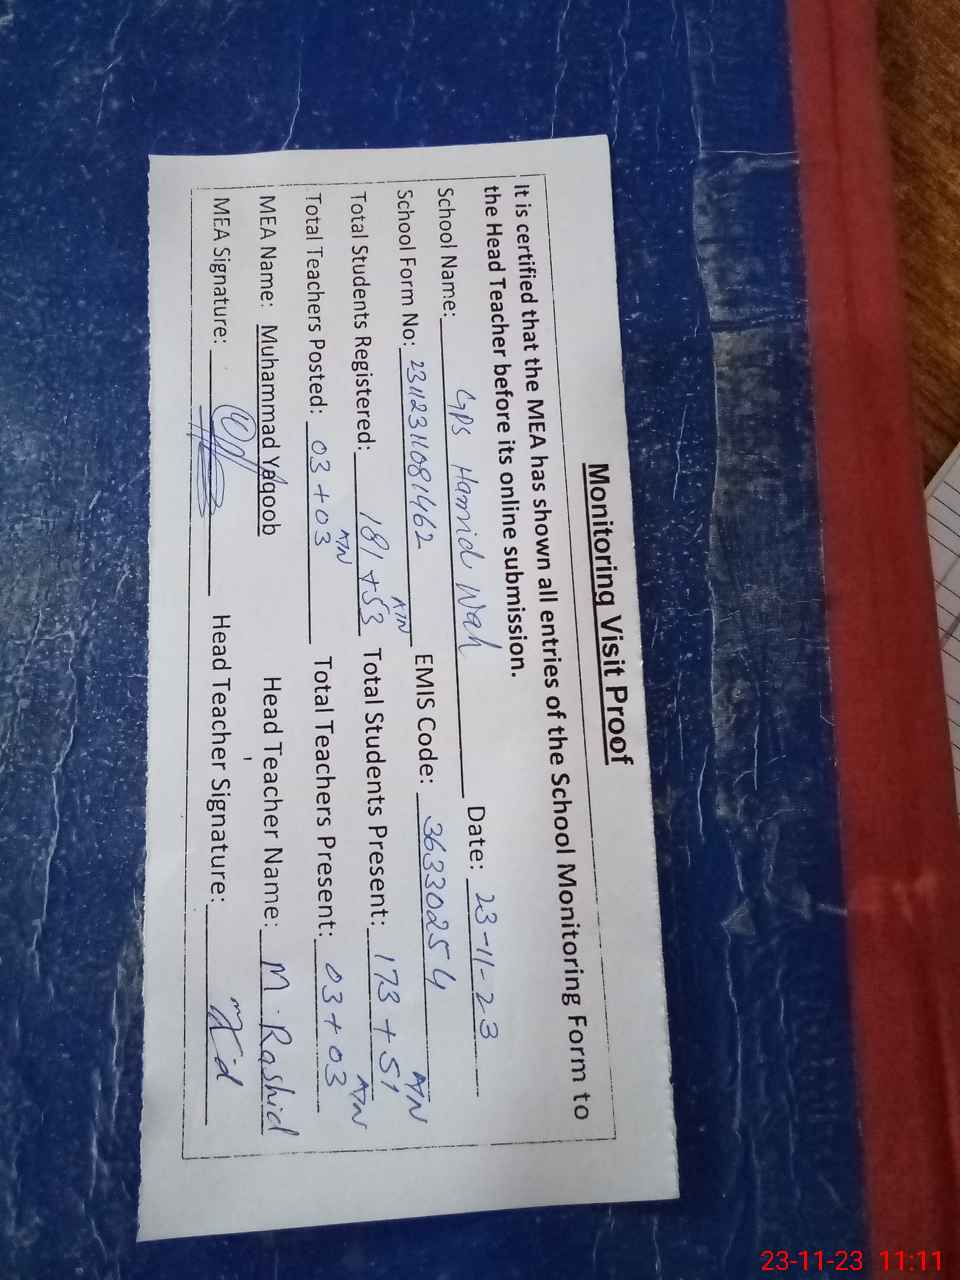 Monitoring Visit Proof
It is certified that the MEA has shown all entries of the School Monitoring Form to
the Head Teacher before its online submission.
School Name: GPS Hamid Wah Date: 23-11-23
School Form No: 23112311081462 EMIS Code: 36330254
Total Students Registered: 181 + 53 A/N Total Students Present: 173 + 51 A/N
Total Teachers Posted: 03 + 03 A/N Total Teachers Present: 03 + 03 A/N
MEA Name: Muhammad Yaqoob Head Teacher Name: M. Rashid
MEA Signature: Head Teacher Signature:
23-11-23 11:11